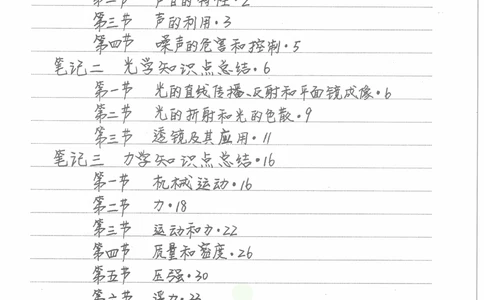 第二节 声音的特性·2
第三节 声的利用·3
第四节 噪声的危害和控制·5
笔记二 光学知识点总结·6
第一节 光的直线传播、反射和平面镜成像·6
第二节 光的折射和光的色散·9
第三节 透镜及其应用·11
笔记三 力学知识点总结·16
第一节 机械运动·16
第二节 力·18
第三节 运动和力·22
第四节 质量和密度·26
第五节 压强·30
第六节 浮力·33